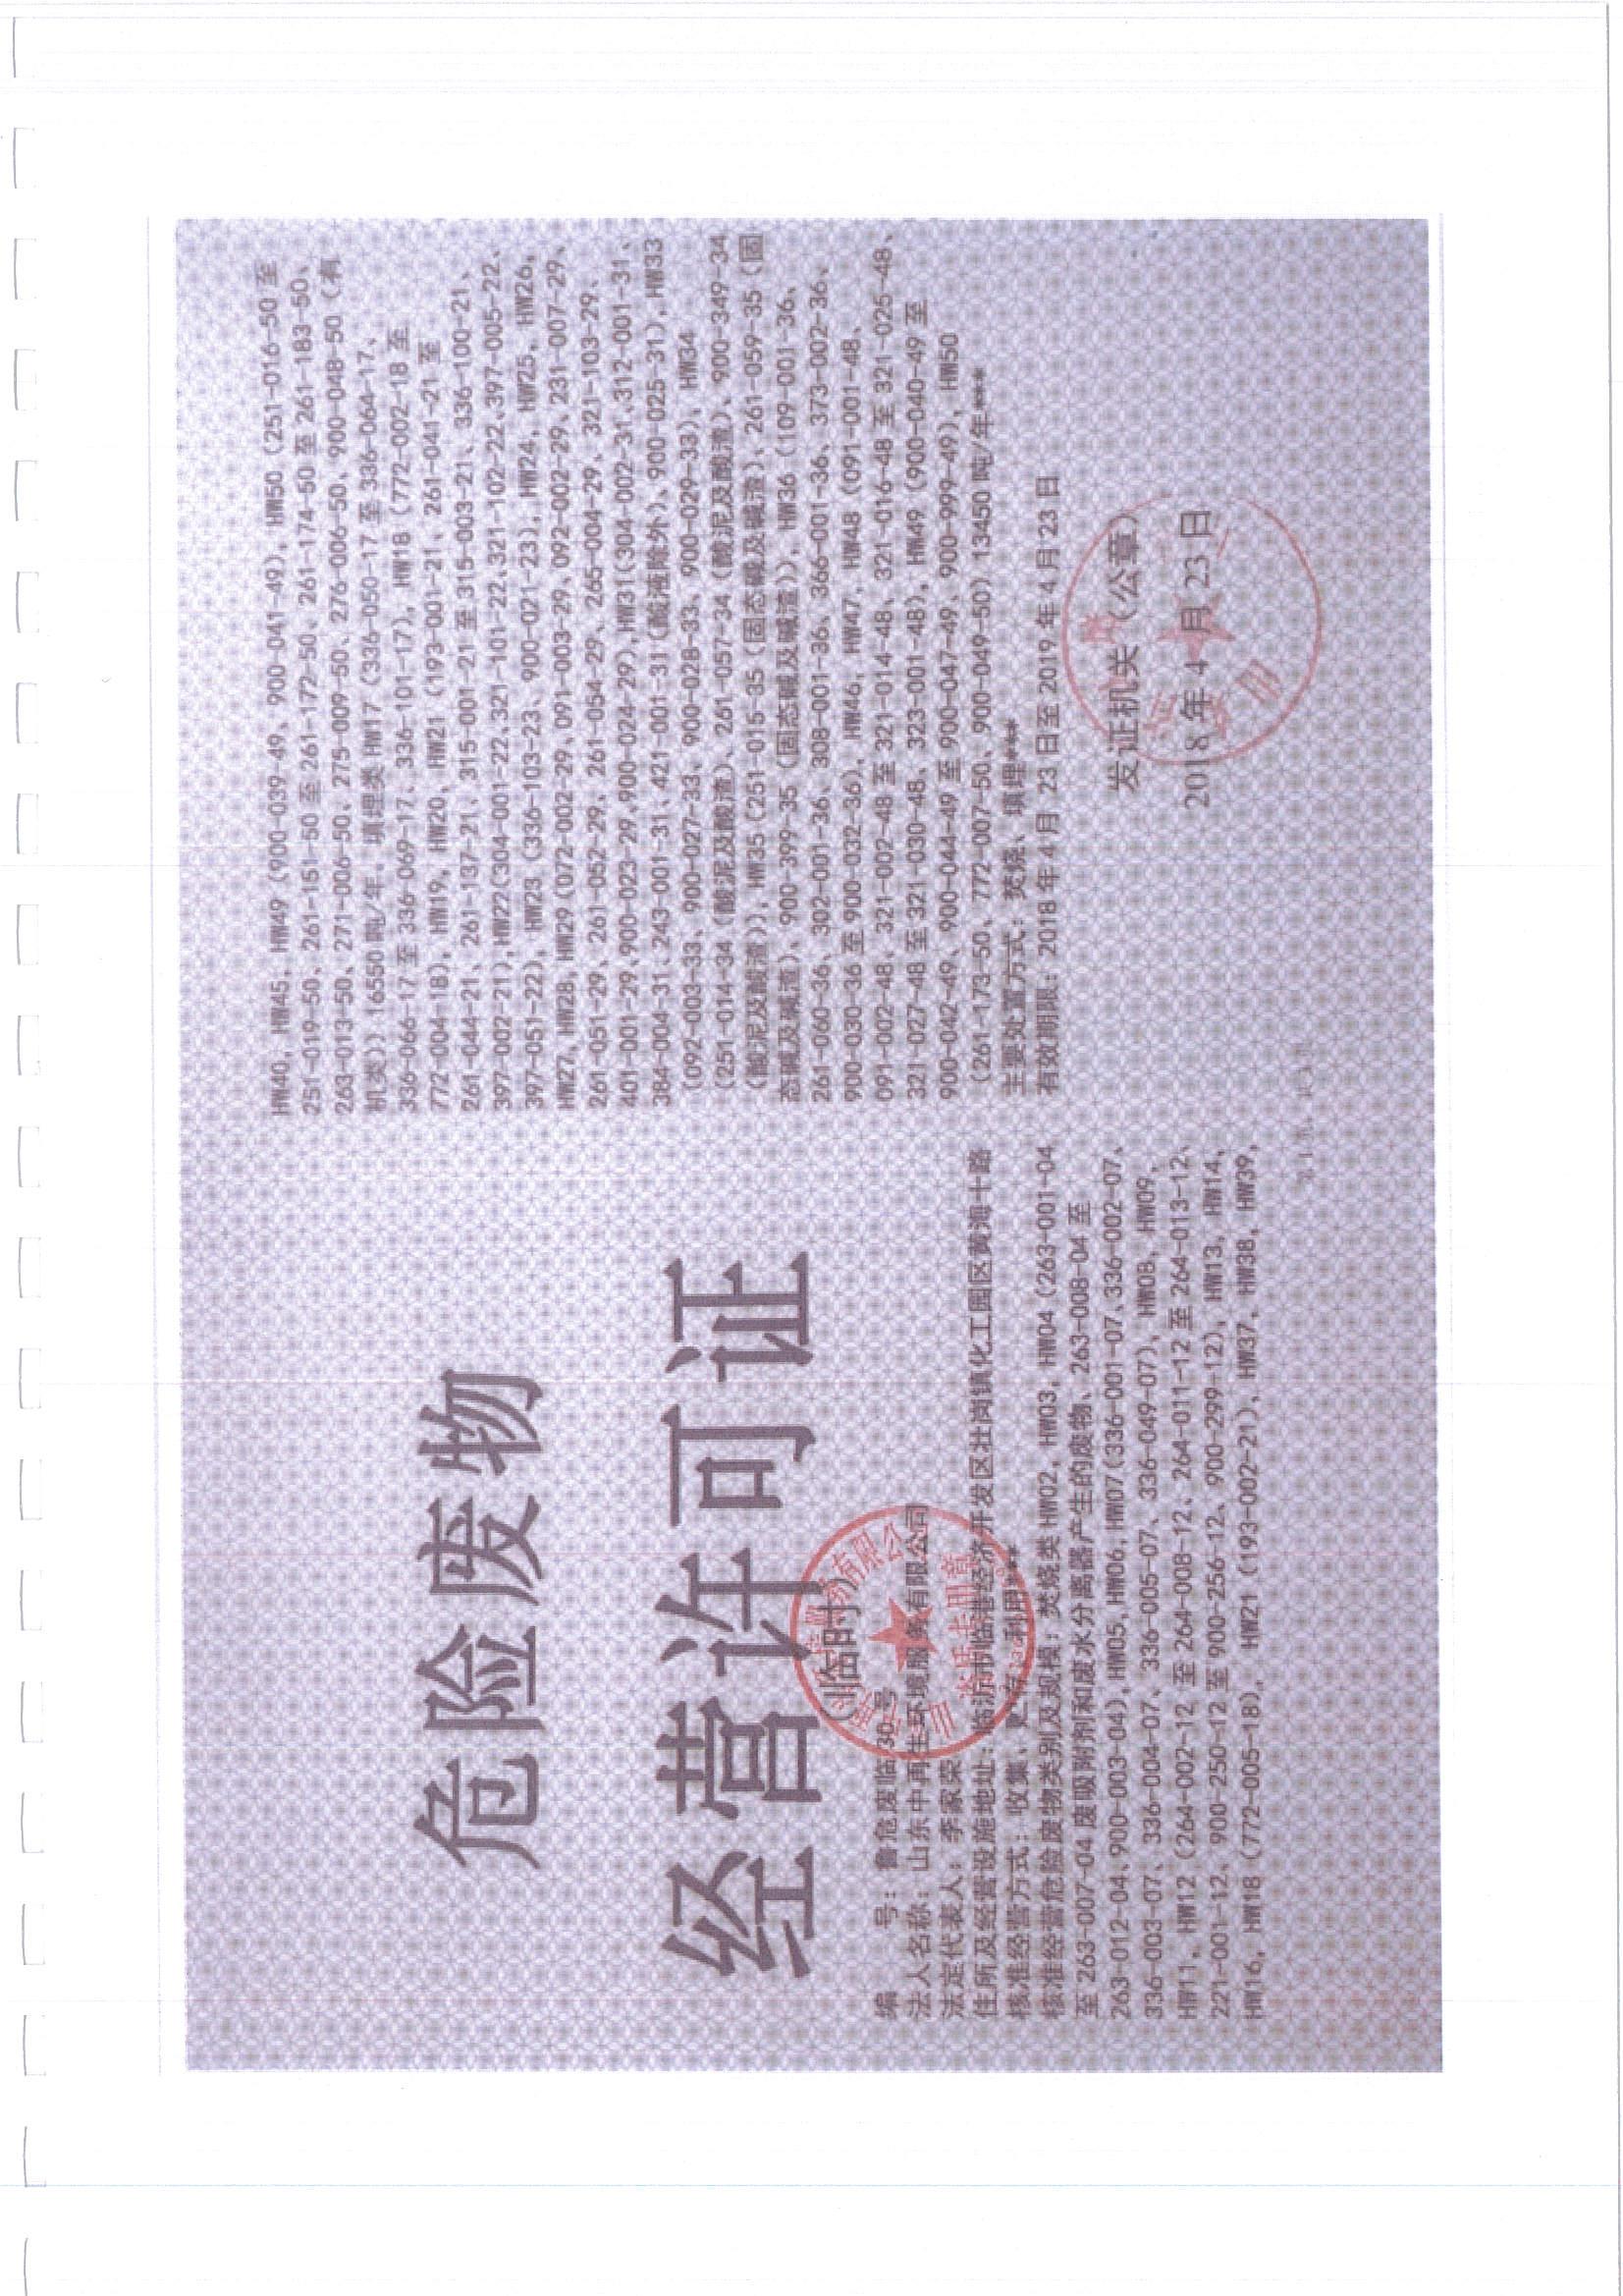 危险废物
经营许可证
(临时)
编 号：鲁危废临30号
法人名称：山东中再生环境服务有限公司
法定代表人：李家荣
住所及经营设施地址：临沂市临港经济开发区壮岗镇化工园区黄海十路
核准经营方式：收集、贮存、利用***
核准经营危险废物类别及规模：焚烧类 HW02，HW03，HW04（263-001-04
至 263-007-04 废吸附剂和废水分离器产生的废物、263-008-04 至
263-012-04、900-003-04），HW05，HW06，HW07（336-001-07、336-002-07、
336-003-07、336-004-07、336-005-07、336-049-07），HW08，HW09，
HW11，HW12（264-002-12 至 264-008-12、264-011-12 至 264-013-12、
221-001-12、900-250-12 至 900-256-12、900-299-12），HW13，HW14，
HW16，HW18（772-005-18），HW21（193-002-21），HW37，HW38，HW39，
HW40，HW45，HW49（900-039-49、900-041-49），HW50（251-016-50 至
251-019-50、261-151-50 至 261-172-50、261-174-50 至 261-183-50、
263-013-50、271-006-50、275-009-50、276-006-50、900-048-50（有
机类））16550 吨/年。填埋类 HW17（336-050-17 至 336-064-17、
336-066-17 至 336-069-17、336-101-17），HW18（772-002-18 至
772-004-18），HW19，HW20，HW21（193-001-21、261-041-21 至
261-044-21、261-137-21、315-001-21 至 315-003-21、336-100-21、
397-002-21），HW22（304-001-22、321-101-22、321-102-22、397-005-22、
397-051-22），HW23（336-103-23、900-021-23），HW24，HW25，HW26，
HW27，HW28，HW29（072-002-29、091-003-29、092-002-29、231-007-29、
261-051-29、261-052-29、261-054-29、265-004-29、321-103-29、
401-001-29、900-023-29、900-024-29），HW31（304-002-31、312-001-31、
384-004-31、243-001-31、421-001-31（酸液除外）、900-025-31），HW33
（092-003-33、900-027-33、900-028-33、900-029-33），HW34
（251-014-34（酸泥及酸渣）、261-057-34（酸泥及酸渣）、900-349-34
（酸泥及酸渣）），HW35（251-015-35（固态碱及碱渣）、261-059-35（固
态碱及碱渣）、900-399-35（固态碱及碱渣）），HW36（109-001-36、
261-060-36、302-001-36、308-001-36、366-001-36、373-002-36、
900-030-36 至 900-032-36），HW46，HW47，HW48（091-001-48、
091-002-48、321-002-48 至 321-014-48、321-016-48 至 321-025-48、
321-027-48 至 321-030-48、323-001-48），HW49（900-040-49 至
900-042-49、900-044-49 至 900-047-49、900-999-49），HW50
（261-173-50、772-007-50、900-049-50）13450 吨/年***
主要处置方式：焚烧、填埋***
有效期限：2018 年 4 月 23 日至 2019 年 4 月 23 日
发证机关（公章）
2018 年 4 月 23 日